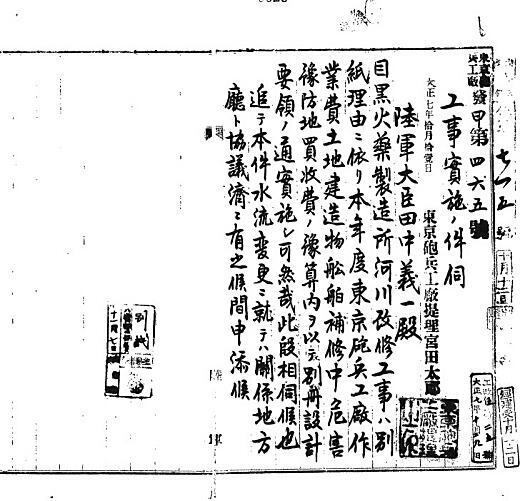 東京砲兵工廠
發甲第四六五號
工事實施ノ件伺
大正七年拾月拾壹日
東京砲兵工廠提理宮田太郎
陸軍大臣田中義一殿
目黒火藥製造所河川改修工事ハ別
紙理由ニ依リ本年度東京砲兵工廠作
業費土地建造物船舶補修中危害
豫防地買收費ノ豫算内ヲ以テ別冊設計
要領ノ通實施シ可然哉此段相伺候也
追テ本件水流変更ニ就テハ關係地方
廳ト協議濟ニ有之候間申添候